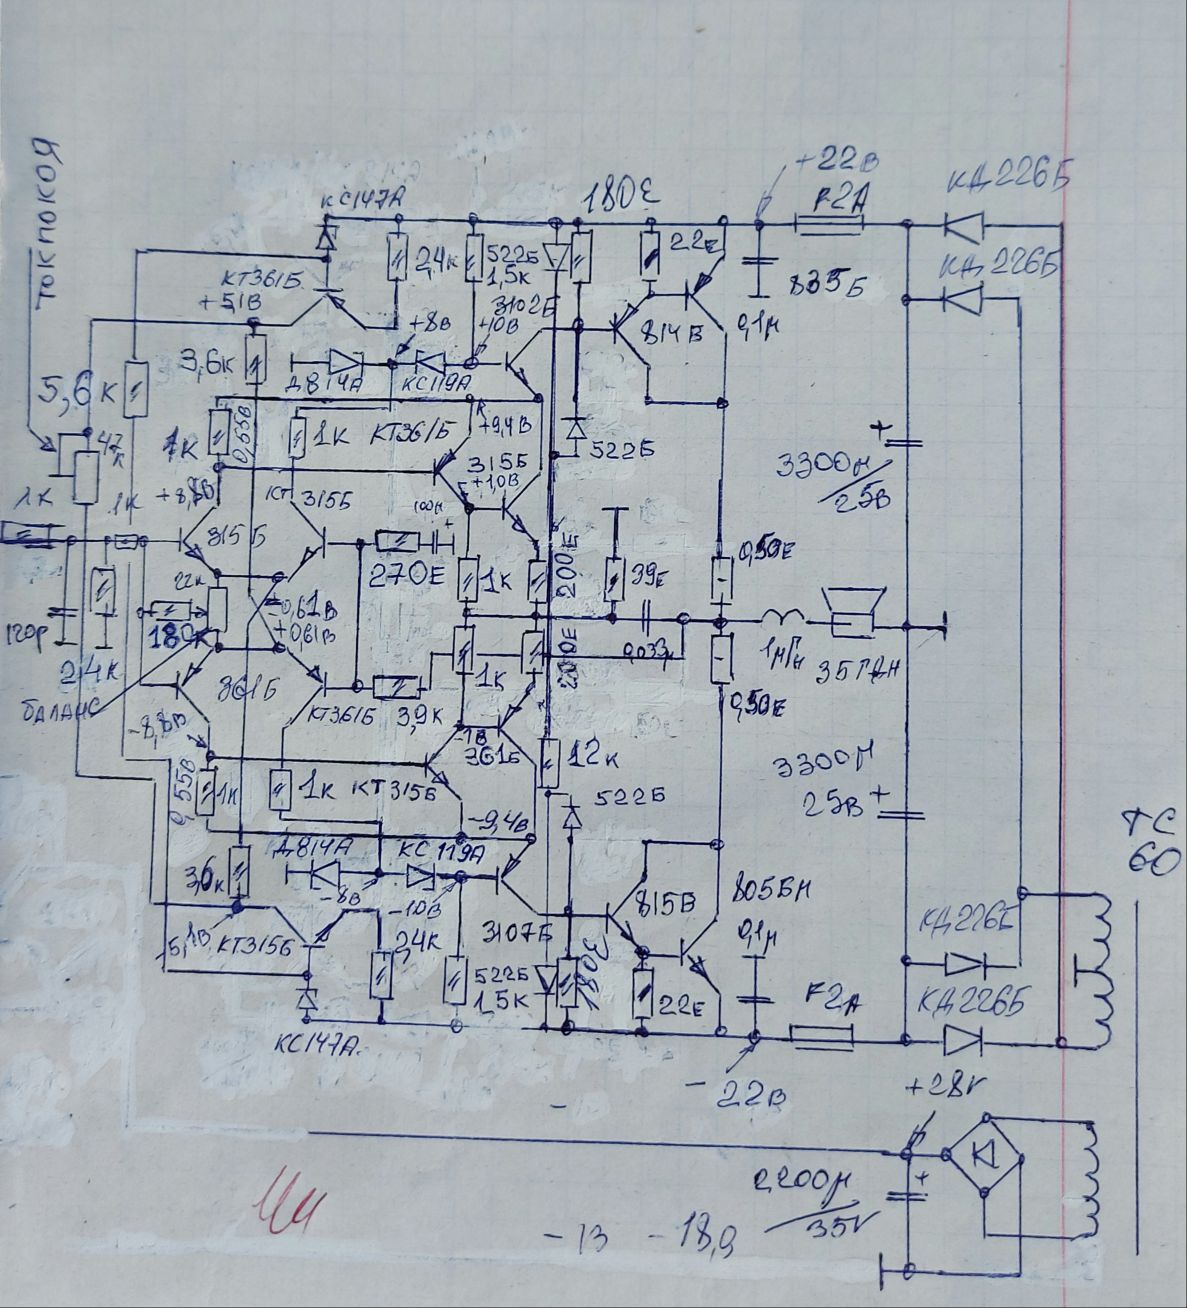 ТОК ПОКОЯ
КС147А
180Е
+22в
F2А
КД226Б
2,4к
522Б
1,5к
22Е
КД226Б
КТ361Б
+5,1В
3102Б
835Б
+8в
+10В
814В
0,1м
3,6к
Д814А
КС119А
5,6к
0,55В
1К
1К
КТ361Б
+9,4В
522Б
47
к
315Б
+1,0В
3300м
25В
+
+8,8В
КТ
315Б
100м
+
1К
1К
315Б
270Е
1К
200Е
39Е
0,50Е
22к
-0,61В
+0,61В
120р
180к
0,033м
1мГн
35ГДН
2,4к
1К
200Е
0,50Е
БАЛАНС
361Б
КТ361Б
3,9к
-8,8В
-1В
361Б
12к
3300м
25В
+
0,55В
1К
1К
КТ315Б
522Б
-9,4В
ТС
60
Д814А
КС119А
3,6к
-8В
-10В
815В
805БМ
КД226Б
-5,1В
КТ315Б
2,4к
3107Б
0,1м
522Б
1,5к
180Е
22Е
F2А
КД226Б
КС147А
-22В
+28V
2200м
35V
+
-13
-18,9